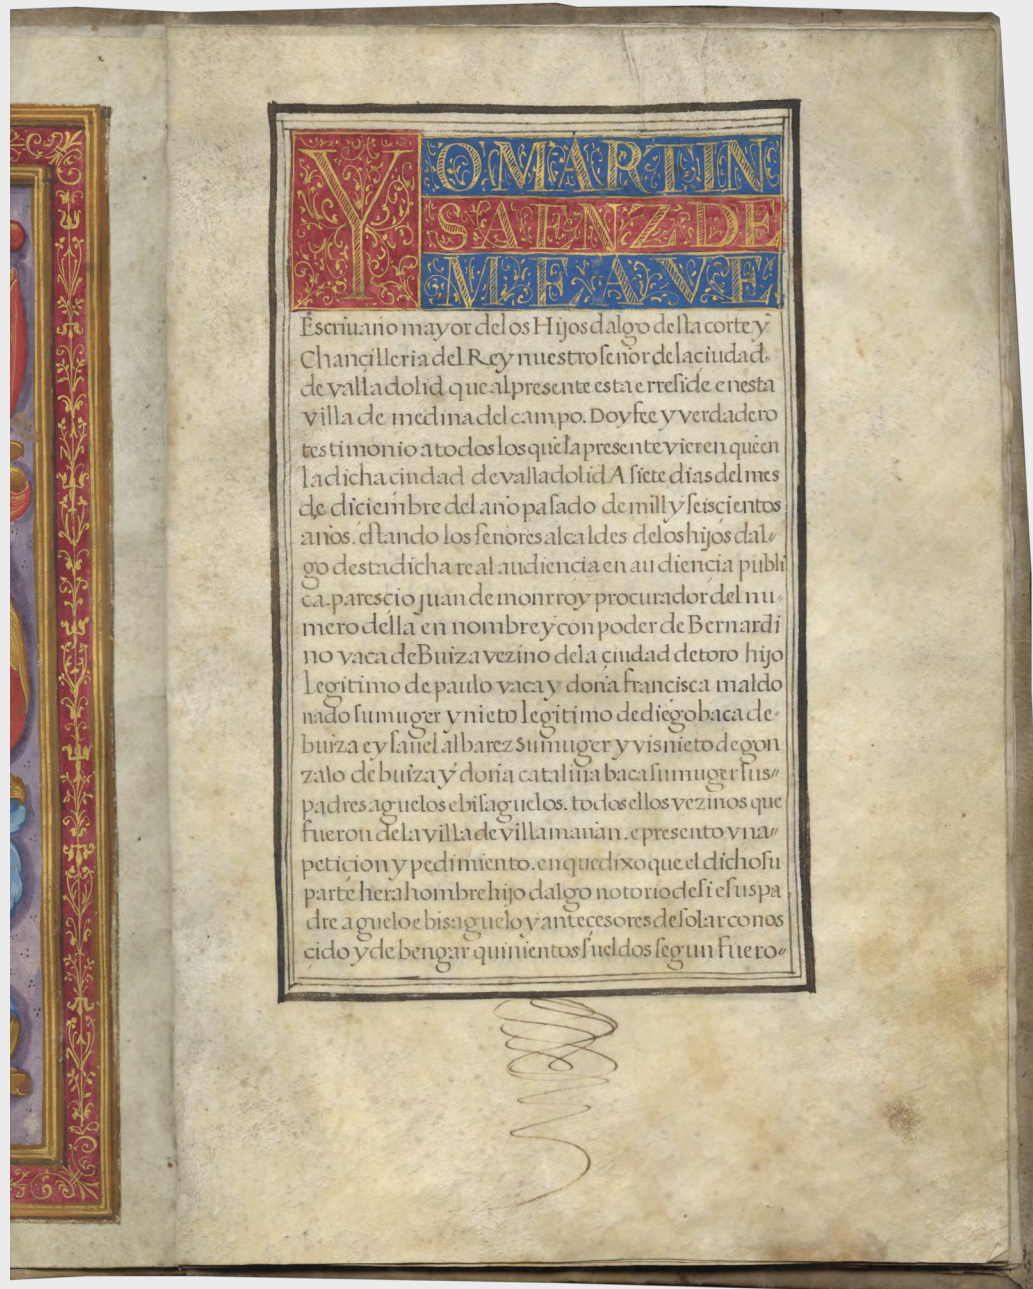 YO MARTIN
SAENZ DE
MEAVE
Escriuario mayor de los Hijos dalgo desta corte y
Chancilleria del Rey nuestro señor de la ciudad
de valladolid que al presente esta e rreside en esta
villa de medina del campo. Doy fee y verdadero
testimonio a todos los que la presente vieren que en
la dicha ciudad de valladolid A siete dias del mes
de diciembre del año pasado de mill y seiscientos
años. estando los señores alcaldes de los hijos dal//
go desta dicha real audiencia en audiencia publi
ca. parescio juan de monrroy procurador del nu//
mero della en nombre y con poder de Bernardi
no vaca de Buiza vezino de la ciudad de toro hijo
legitimo de paulo vaca y doña francisca maldo
nado su muger y nieto legitimo de diego baca de
buiza e ysauel albarez su muger y visnieto de gon
zalo de buiza y doña catalina baca su muger sus//
padres aguelos e bisaguelos. todos ellos vezinos que
fueron de la villa de villamañan. e presento vna//
peticion y pedimiento. en que dixo que el dicho su
parte hera hombre hijo dalgo notorio de si e sus pa
dre aguelo e bisaguelo y antecesores de solar conos
cido y de bengar quinientos sueldos segun fuero//